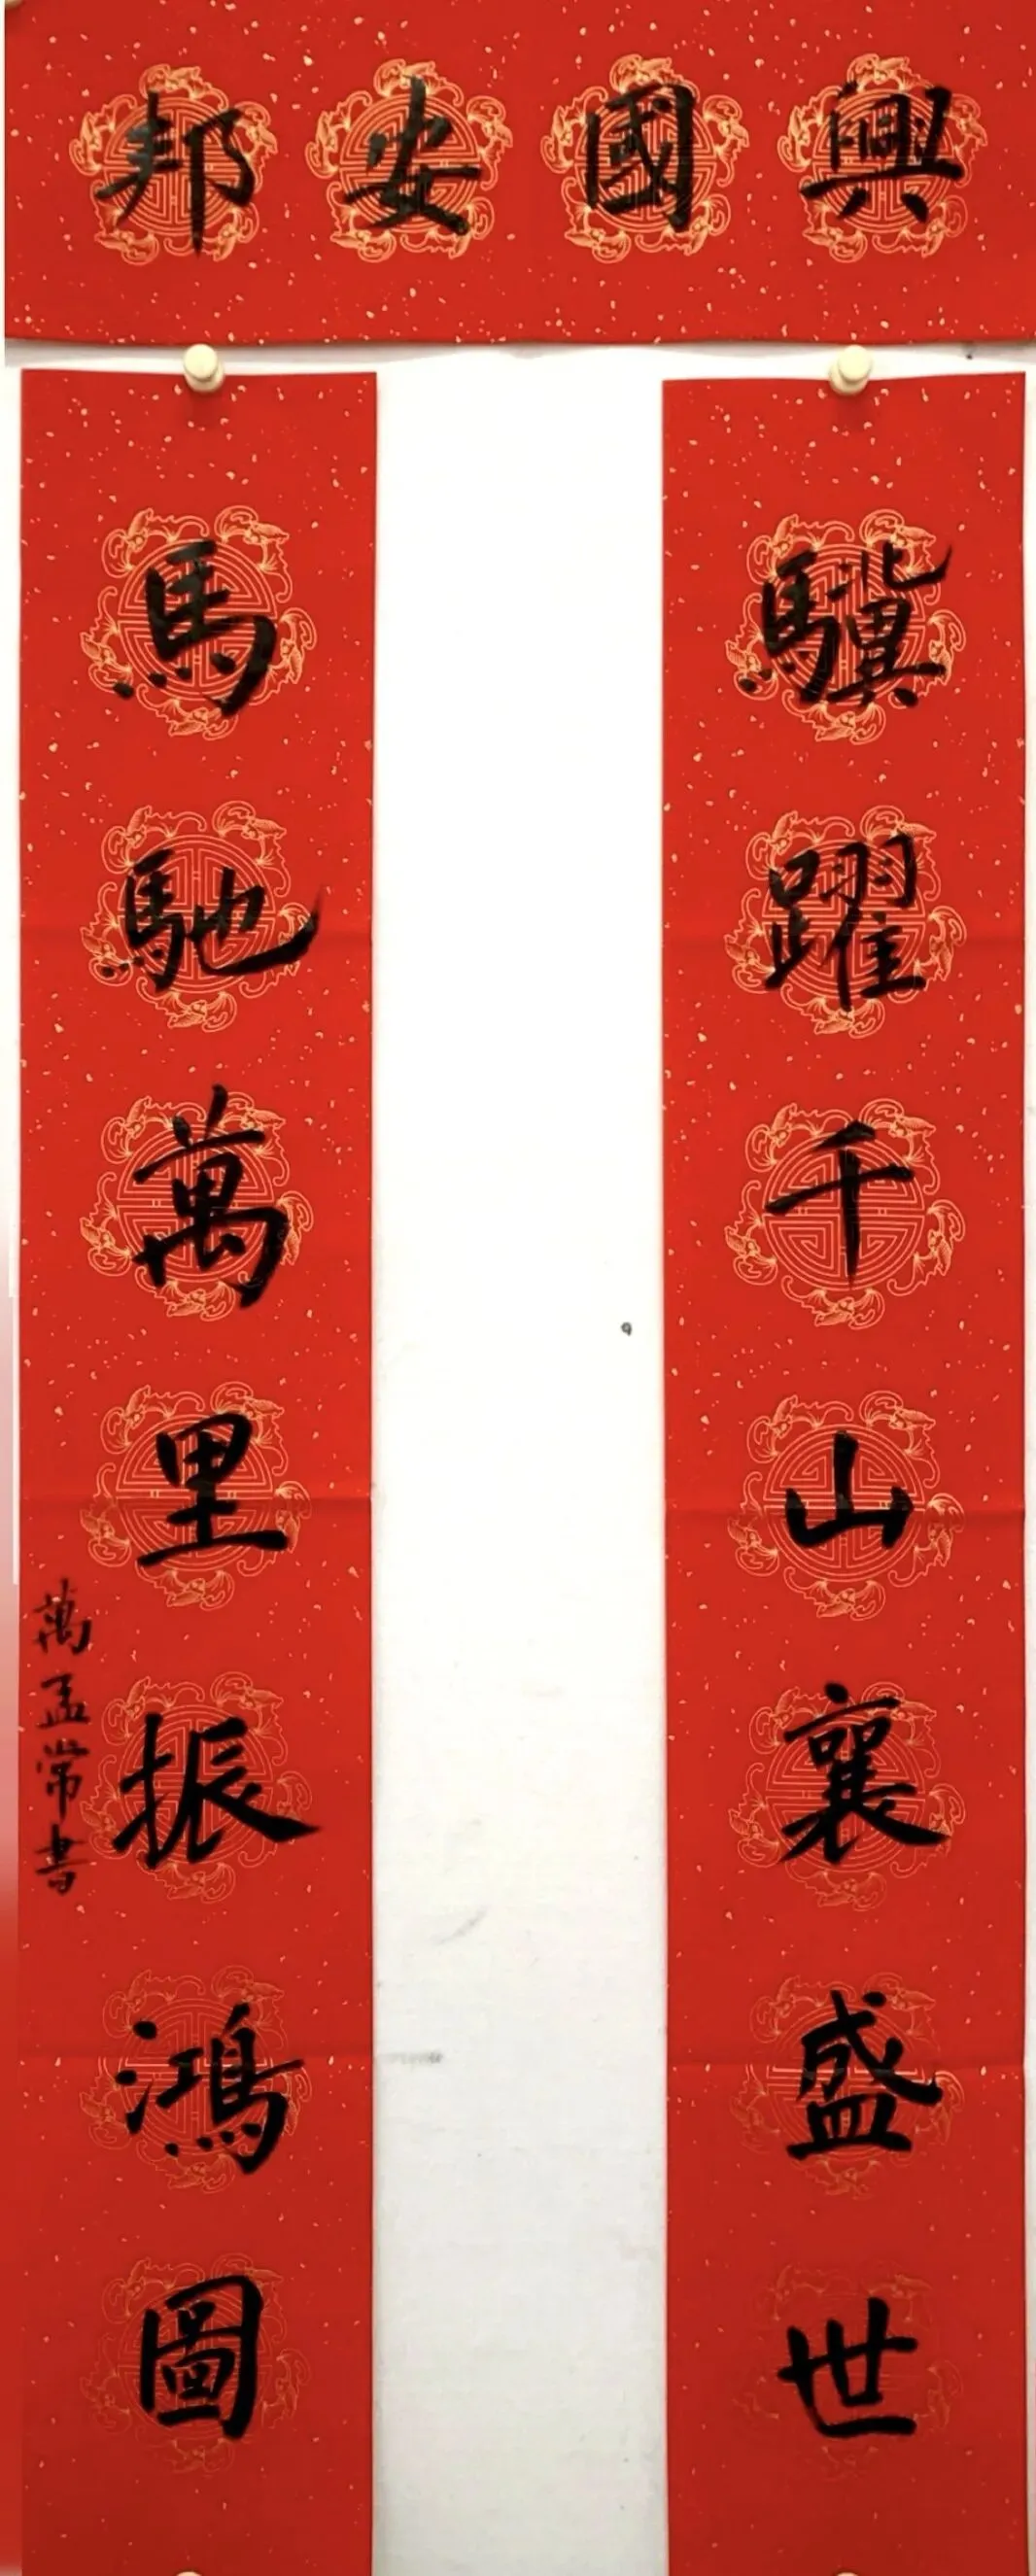 興國安邦
驥躍千山襄盛世
馬馳萬里振鴻圖
萬孟常書